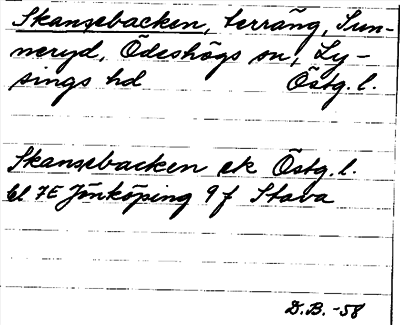 Skansebacken, terräng, Sun-
neryd, Ödeshögs sn, Ly-
sings hd Östg. l.
Skansebacken ek Östg. l.
bl 7E Jönköping 9 f Stava
D.B. -58